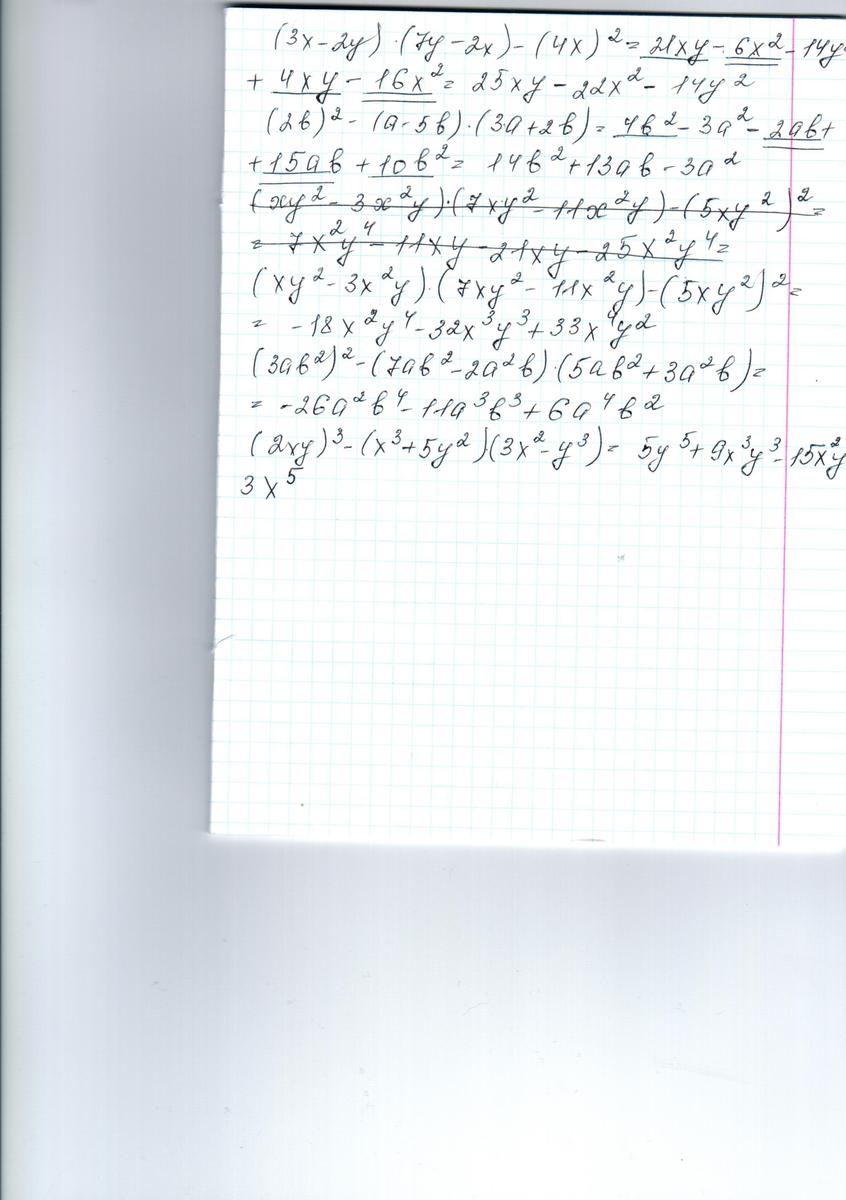 (3x-2y)·(7y-2x)-(4x)²= 21xy-6x²-14y²
+4xy-16x²= 25xy-22x²-14y²
(2b)²-(a-5b)·(3a+2b)= 4b²-3a²-2ab+
+15ab+10b²= 14b²+13ab-3a²
(xy²-3x²y)·(7xy²-11x²y)-(5xy²)²=
= 7x²y⁴-11xy-21xy-25x²y⁴=
(xy²-3x²y)·(7xy²-11x²y)-(5xy²)²=
= -18x²y⁴-32x³y³+33x⁴y²
(3ab²)²-(7ab²-2a²b)·(5ab²+3a²b)=
= -26a²b⁴-11a³b³+6a⁴b²
(2xy)³-(x³+5y²)·(3x²-y³)= 5y⁵+9x³y³-15x²y
3x⁵